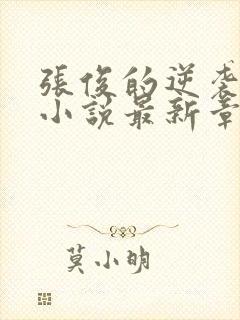 張俊的逆袭
小説最新章
莫小明